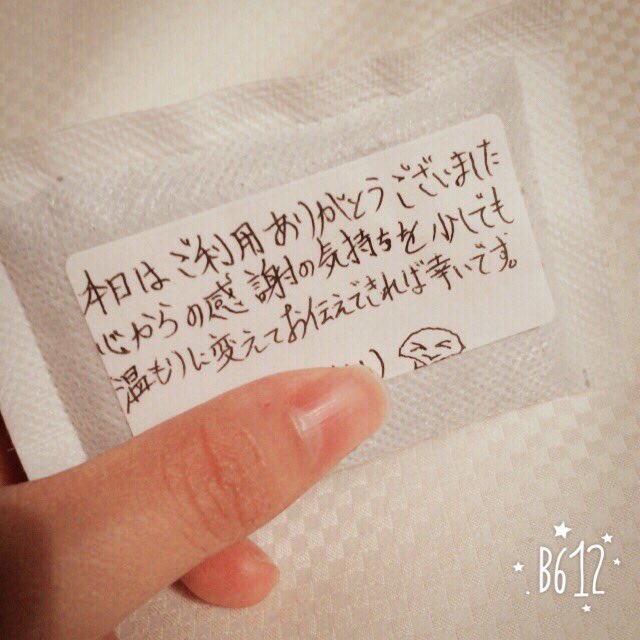 本日はご利用ありがとうございました
心からの感謝の気持ちを少しでも
温もりに変えてお伝えできれば幸いです。
B612